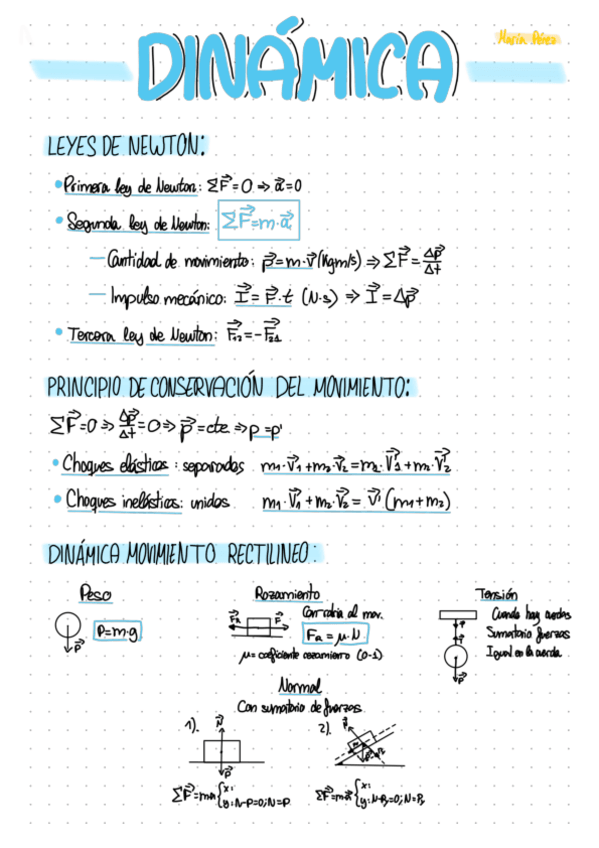 DINÁMICA
María Pérez
LEYES DE NEWTON:
• Primera ley de Newton: ΣF⃗=0 ⇒ a⃗=0
• Segunda ley de Newton: ΣF⃗=m·a⃗
— Cantidad de movimiento: p⃗=m·v⃗ (Kgm/s) ⇒ ΣF⃗=Δp⃗/Δt
— Impulso mecánico: I⃗=F⃗·t (N·s) ⇒ I⃗=Δp⃗
• Tercera ley de Newton: F⃗₁₂=-F⃗₂₁
PRINCIPIO DE CONSERVACIÓN DEL MOVIMIENTO:
ΣF⃗=0 ⇒ Δp⃗/Δt=0 ⇒ p⃗=cte ⇒ p=p'
• Choques elásticos: separados m₁·v⃗₁+m₂·v⃗₂=m₁·v⃗'₁+m₂·v⃗'₂
• Choques inelásticos: unidos m₁·v⃗₁+m₂·v⃗₂=v⃗'(m₁+m₂)
DINÁMICA MOVIMIENTO RECTILINEO:
Peso
P=m·g
P⃗
Rozamiento
Contraria al mov.
F⃗R
F⃗
FR=μ·N
μ=coeficiente rozamiento (0-1)
Tensión
Cuando hay cuerdas
Sumatorio fuerzas
Igual en la cuerda
P⃗
Normal
Con sumatorio de fuerzas
1).
N⃗
P⃗
ΣF⃗=ma { x:
y: N-P=0; N=P
2).
N⃗
ΣF⃗=ma⃗ { x:
y: N-Py=0; N=Py